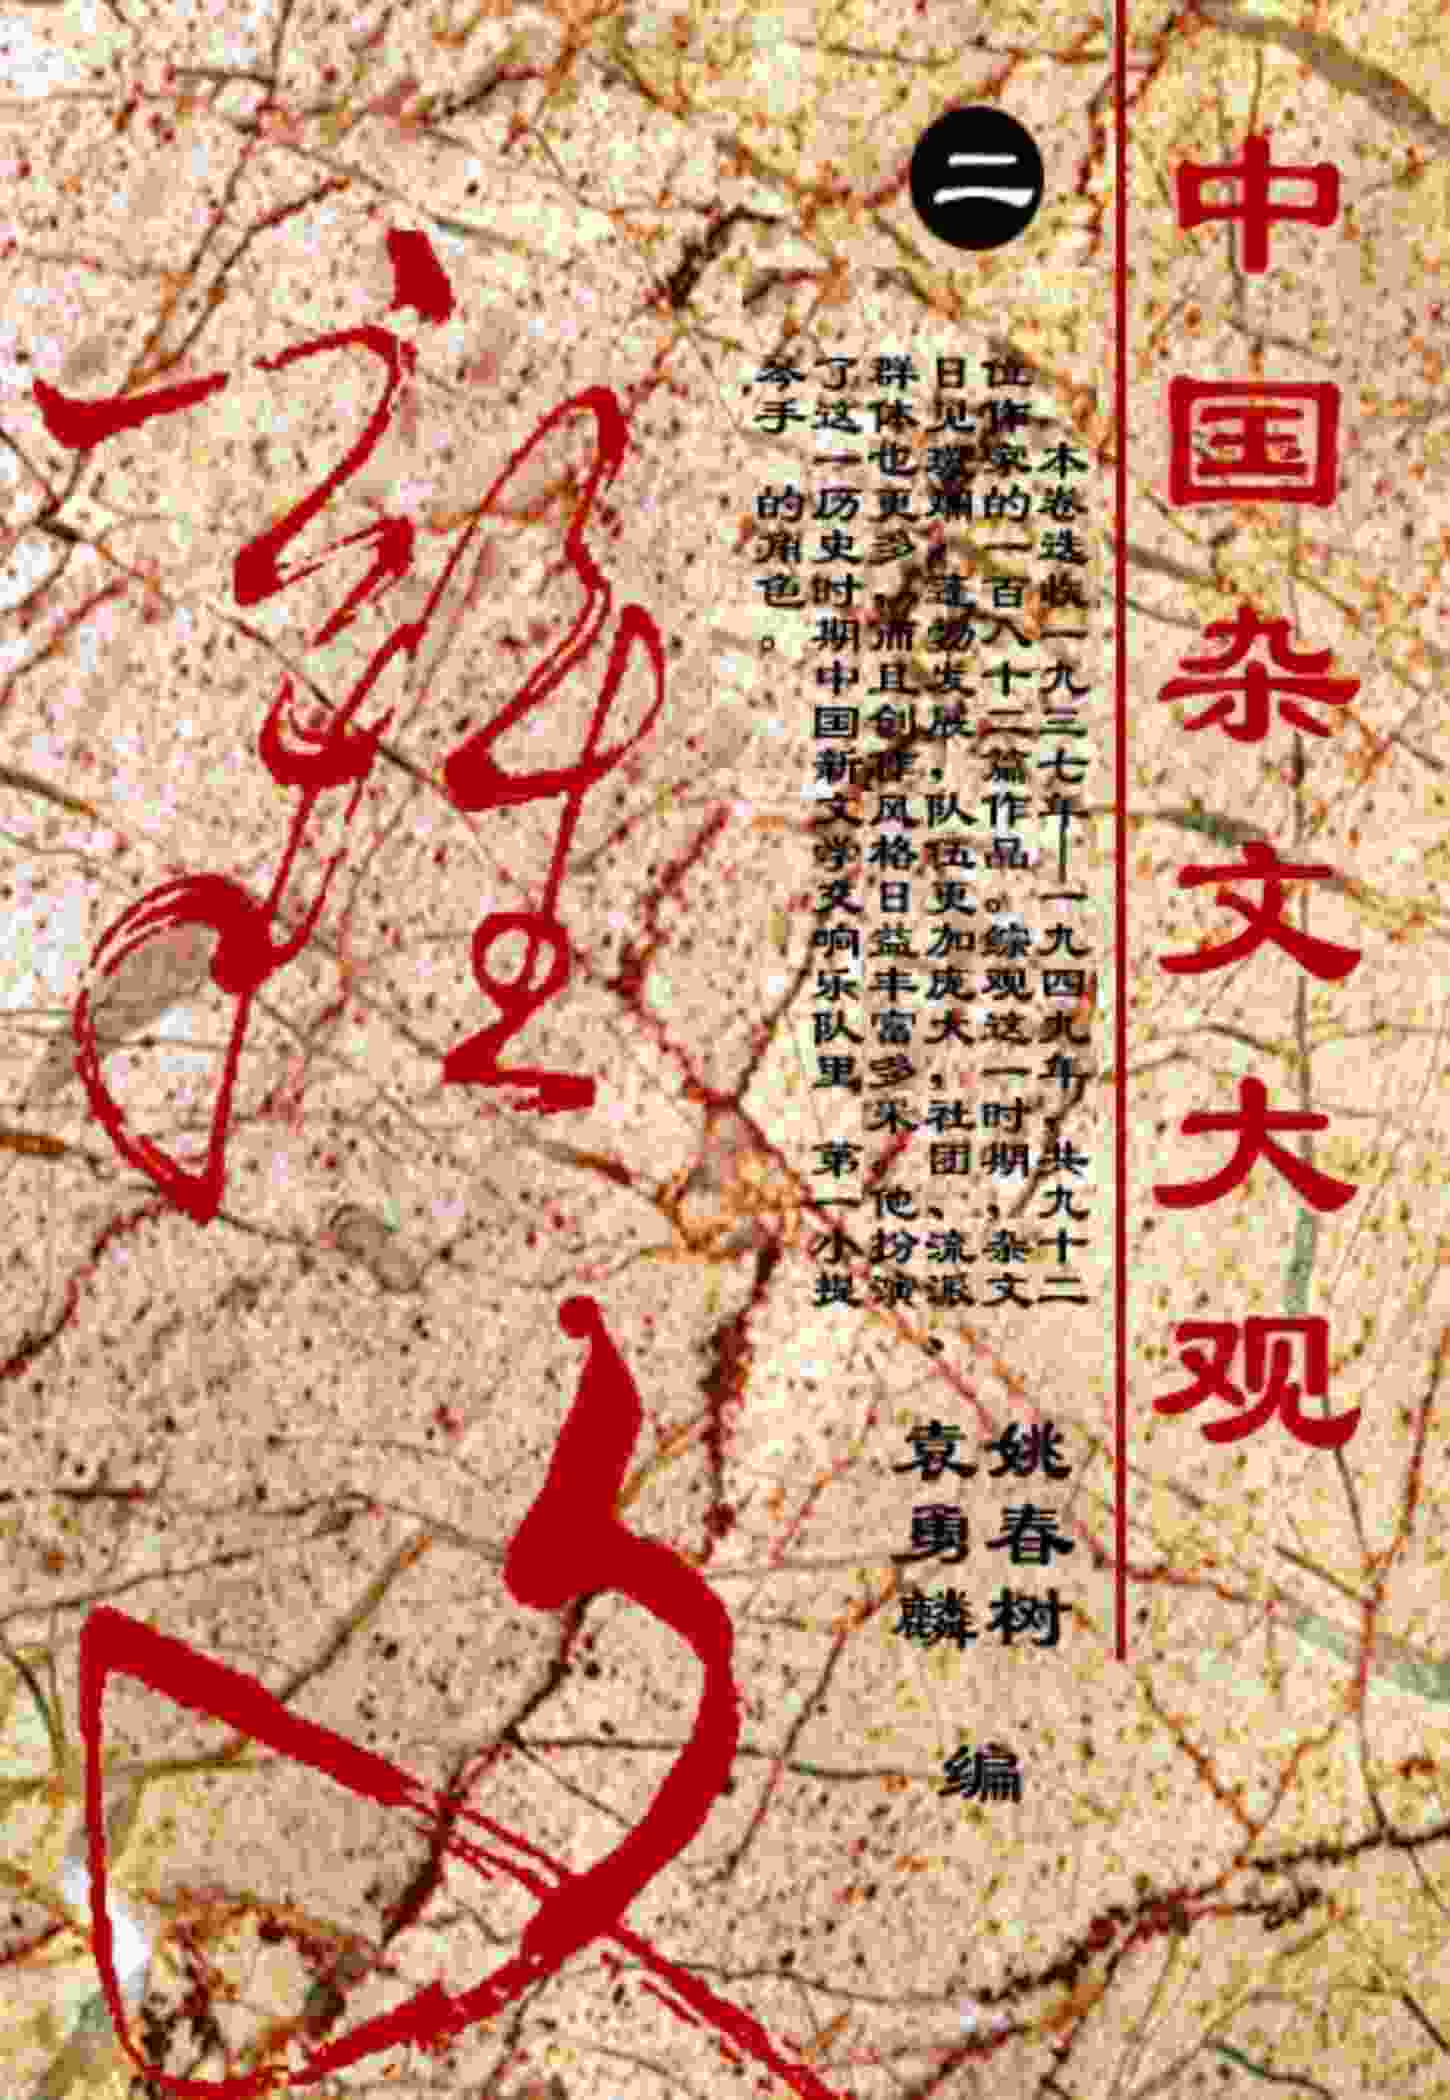 中国杂文大观
二
本卷选收一九三七年—一九四九年,共九十二
位作家的一百八十二篇作品。综观这一时期,杂文
日见,蓬勃发展,队伍更加庞大,社团、流派、
群体也更多,而且创作风格日益丰富多采,他扮演
了这一历史时期中国新文学交响乐队里第一小提
琴手的角色。
姚春树
袁勇麟
编
雜文